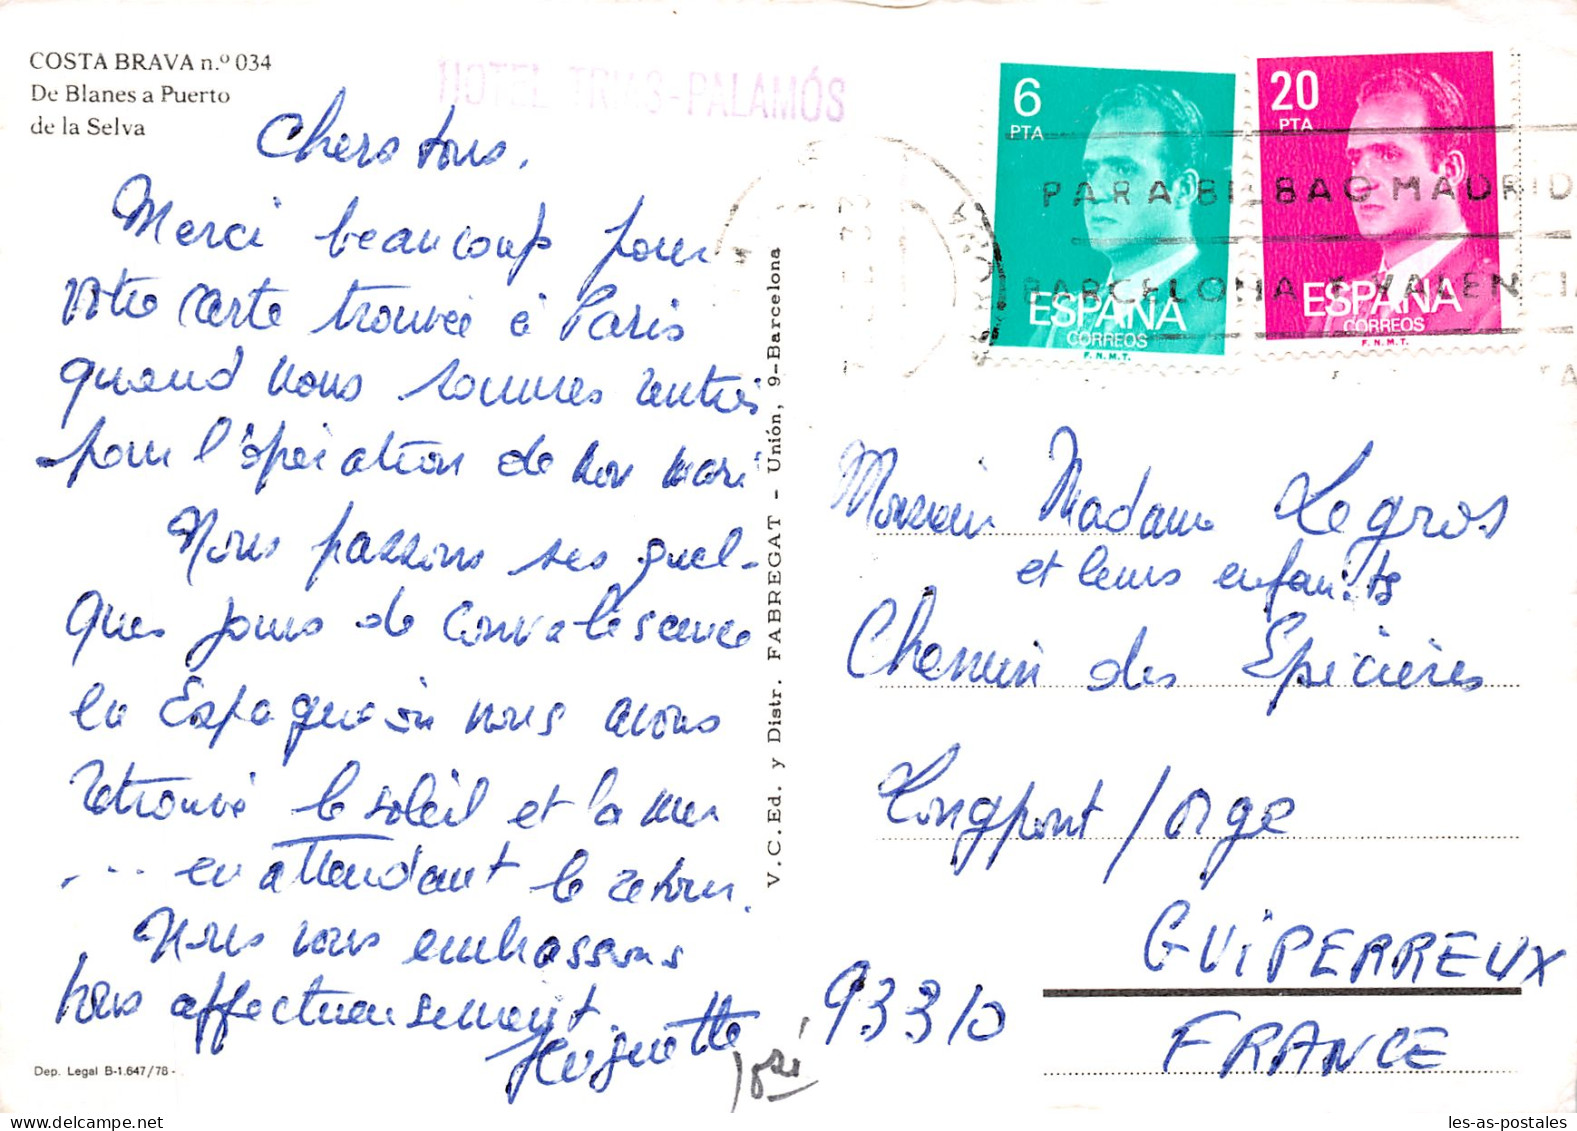 COSTA BRAVA n.º 034
De Blanes a Puerto
de la Selva
HOTEL TRIAS-PALAMÓS
Chers tous.
Merci beaucoup pour
votre carte trouvée à Paris
quand nous sommes rentrés
pour l'opération de mon mari
Nous passons ses quel-
ques jours de convalescence
en Espagne où nous avons
retrouvé le soleil et la mer
... en attendant le retour.
Nous vous embrassons
tous affectueusement.
Huguette
José
Dep. Legal B-1.647/78-
V.C.Ed. y Distr. FABREGAT - Unión, 9-Barcelona
6
PTA
ESPAÑA
CORREOS
F.N.M.T.
20
PTA
ESPAÑA
CORREOS
F.N.M.T.
PARA BILBAO MADRID
BARCELONA Y VALENCIA
Monsieur Madame Legros
et leurs enfants
Chemin des Epicières
Longpont/Orge
GUIPERREUX
93310
FRANCE
les-as-postales